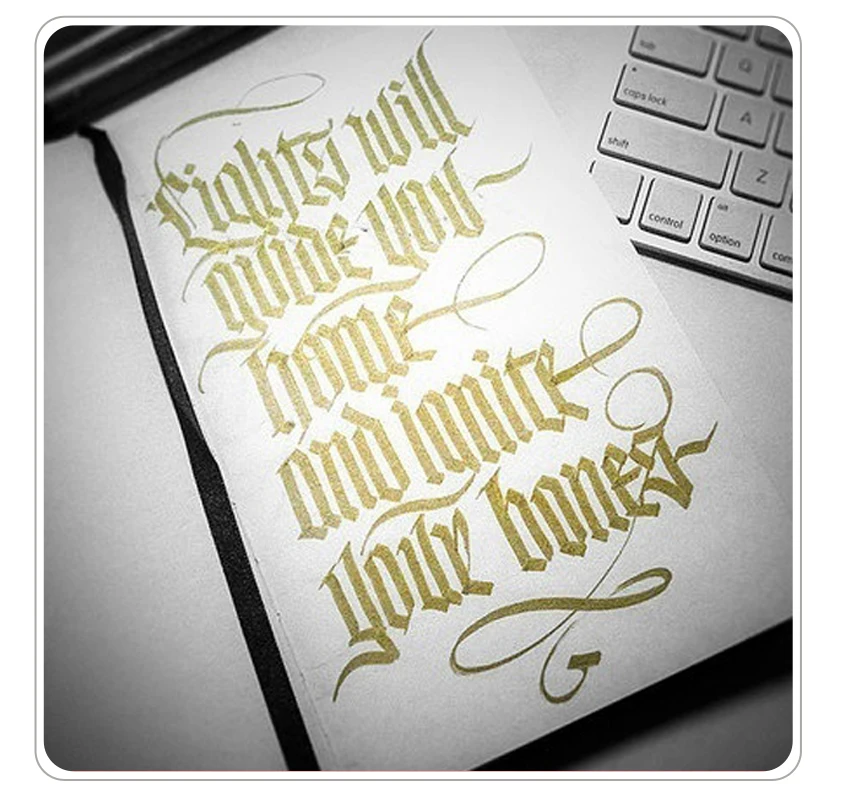 Lights will
guide you
home
and ignite
your bones
tab
Q
caps lock
A
shift
Z
control
alt
option